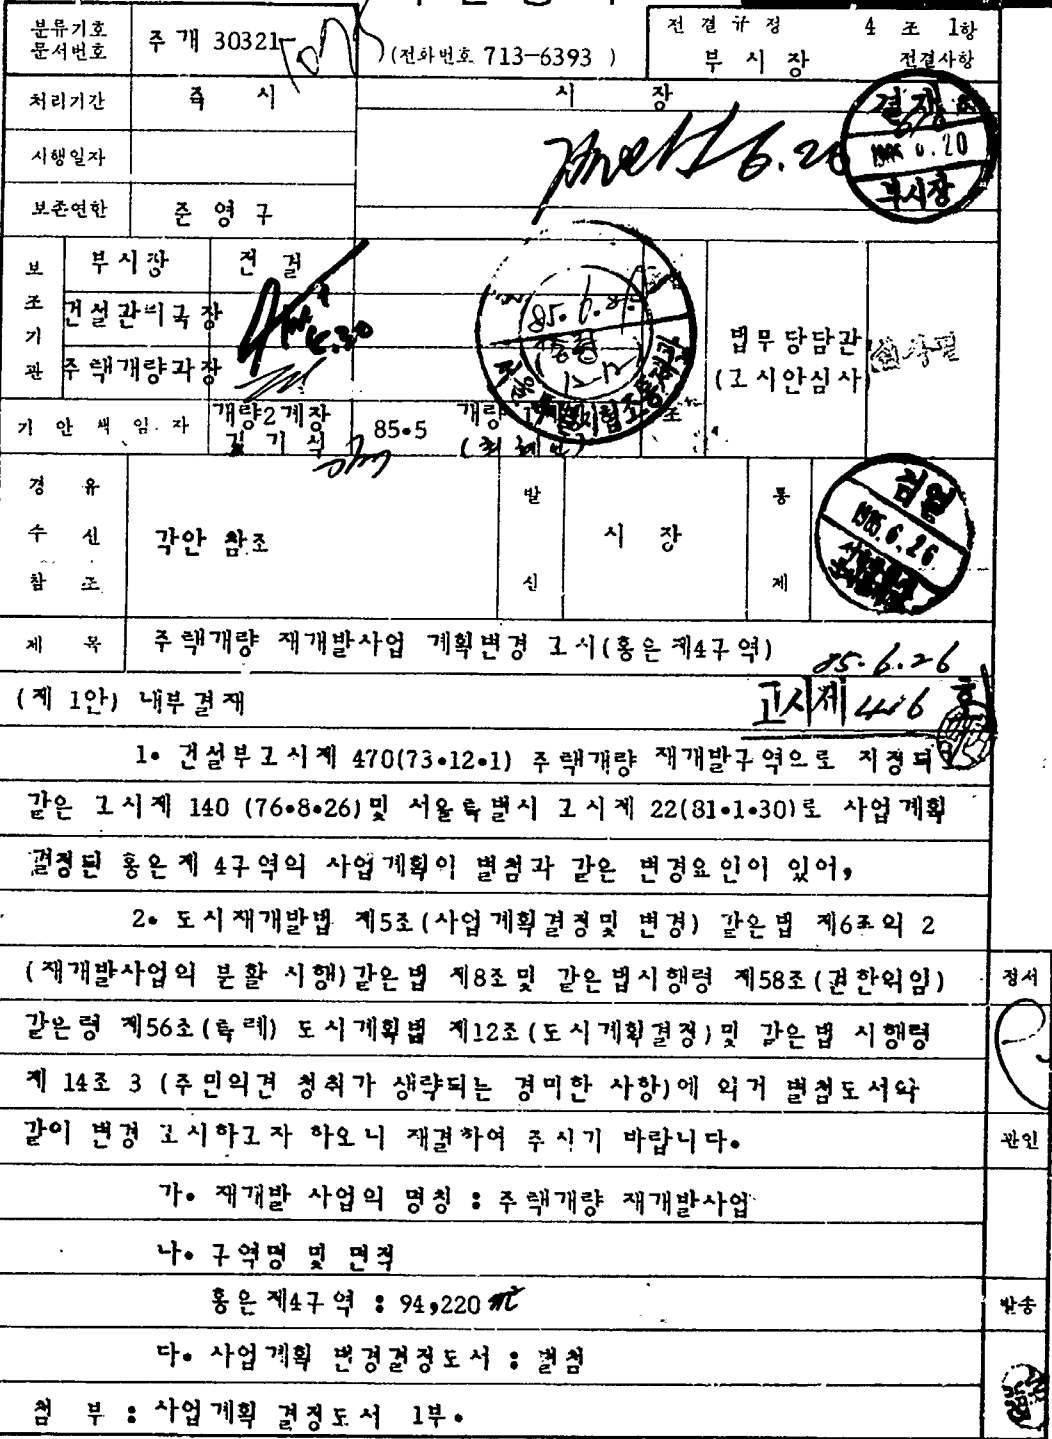 분류기호 문서번호 주개 30321- (전화번호 713-6393 ) 전결규정 4 조 1항
부 시 장 전결사항
처리기간 즉 시 시 장
6.20 결재 6.20 부시장
시행일자
보존연한 준 영구
보조기관 부시장 전결
건설관리국장 6.30
주택개량과장
85.6.
법무당담관
(고시안심사)
기 안 책 임 자 개량2계장 김 기 식 85•5 개량
경 유
수 신 각안 참조 발 신 시 장 통 제
참 조
검열 1985.6.26
제 목 주택개량 재개발사업 계획변경 고시(홍은제4구역)
85.6.26
(제 1안) 내부결재 고시제 446 호
1. 건설부고시제 470(73•12•1) 주택개량 재개발구역으로 지정되고
같은 고시제 140 (76•8•26)및 서울특별시 고시제 22(81•1•30)로 사업계획
결정된 홍은제 4구역의 사업계획이 별첨과 같은 변경요인이 있어,
2. 도시재개발법 제5조(사업계획결정및 변경) 같은법 제6조의 2
(재개발사업의 분활 시행)같은법 제8조및 같은법시행령 제58조(권한위임)
정서
같은령 제56조(특례) 도시계획법 제12조(도시계획결정)및 같은법 시행령
제 14조 3 (주민의견 청취가 생략되는 경미한 사항)에 의거 별첨도서와
같이 변경 고시하고자 하오니 재결하여 주시기 바랍니다.
관인
가. 재개발 사업의 명칭 : 주택개량 재개발사업
나. 구역명 및 면적
홍은제4구역 : 94,220㎡
발송
다. 사업계획 변경결정도서 : 별첨
첨 부 : 사업계획 결정도서 1부.